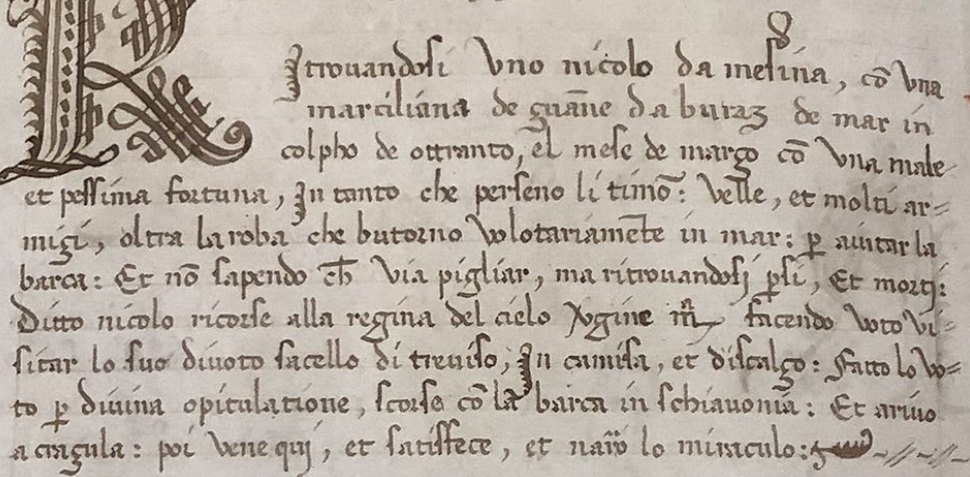 Ritrovandosi Vno nicolo da mesina, cõ Vna
marciliana de guãne da buraʒ de mar in
colpho de ottranto, el mese de março cõ Vna male
et pessima fortuna, In tanto che perseno li timõ: Velle, et molti ar=
migi, oltra la roba che butorno Volotariamẽte in mar: ꝑ aiutar la
barca: Et nõ sapendo ch̃ Via pigliar, ma ritrouandosj ꝑsi, Et mortj:
Ditto nicolo ricorse alla regina del cielo Vgine mã facendo Voto Vi=
sitar lo suo diuoto sacello di treuiso, In camisa, et discalço: Fatto lo Vo=
to ꝑ diuina opitulatione, scorse cõ la barca in schiauonia: Et ariuo
a cragula: poi Vene quj, et satisfece, et narro lo miraculo: